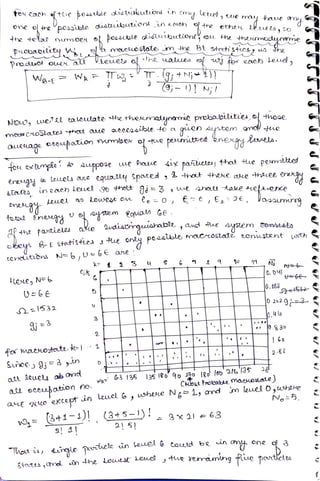 For each of the possible distributions in any level, we may have any
one of the possible distributions in each of the other levels, so
the total number of possible distributions, or the thermodynamic
probability W of a macrostate in the BE statistics, is the
product over all levels of the values of wj for each level,
W_B-E = W_k = ∏_j w_j = ∏_j (g_j + N_j - 1)! / (g_j - 1)! N_j!
Now, we'll calculate the thermodynamic probabilities of those
macrostates that are accessible to a given system and the
average occupation number of the permitted energy levels.
for example: suppose we have six particles, that the permitted
energy levels are equally spaced, & that there are three energy
states in each level so that gj = 3, we shall take reference
energy level as lowest on E0 = 0, E1 = E, E2 = 2E. Assuming
total energy U of system equals 6E.
If the particles are indistinguishable, and the system consists
obeys B-E statistics, the only possible macrostate consistent with
conditions N=6, U=6E are:
k= 1 2 3 4 5 6 7 8 9 10 11
Here, N=6
U=6E
Ω=1532
gj=3
for macrostate k=1
Since, gj=3, in
all levels and
all occupation no.
63 135 135 180 90 270 180 100 216 135 28
(Most probable macrostate)
are zero except in level 6, where N6=1, and in level 0, where
N0=5.
w6 = (3+1-1)! / 2! 1! (3+5-1)! / 2! 5! = 3 x 21 = 63
That is, single particle in level 6 could be in any one of 3
states, and in the lowest level, the remaining five particles